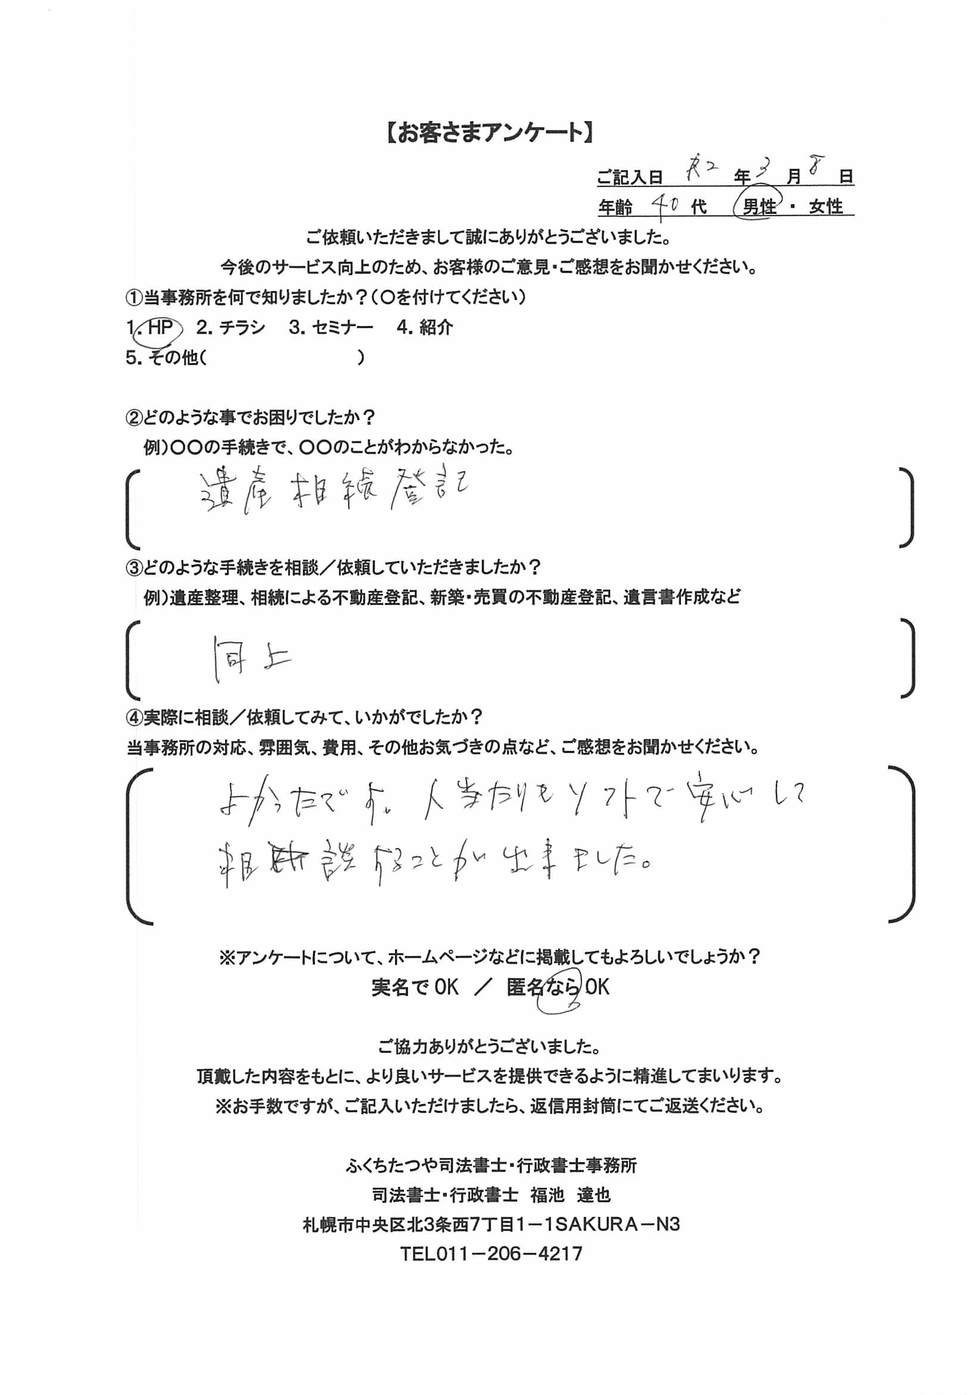 【お客さまアンケート】
ご記入日 R2 年 3 月 8 日
年齢 40 代 男性 ・ 女性
ご依頼いただきまして誠にありがとうございました。
今後のサービス向上のため、お客様のご意見・ご感想をお聞かせください。
①当事務所を何で知りましたか?(○を付けてください)
1. HP 2. チラシ 3. セミナー 4. 紹介
5. その他( )
②どのような事でお困りでしたか?
例)○○の手続きで、○○のことがわからなかった。
遺産相続登記
③どのような手続きを相談/依頼していただきましたか?
例)遺産整理、相続による不動産登記、新築・売買の不動産登記、遺言書作成など
同上
④実際に相談/依頼してみて、いかがでしたか?
当事務所の対応、雰囲気、費用、その他お気づきの点など、ご感想をお聞かせください。
よかったです。人当たりもソフトで安心して
相談することが出来ました。
※アンケートについて、ホームページなどに掲載してもよろしいでしょうか?
実名でOK / 匿名ならOK
ご協力ありがとうございました。
頂戴した内容をもとに、より良いサービスを提供できるように精進してまいります。
※お手数ですが、ご記入いただけましたら、返信用封筒にてご返送ください。
ふくちたつや司法書士・行政書士事務所
司法書士・行政書士 福池 達也
札幌市中央区北3条西7丁目1-1SAKURA-N3
TEL011-206-4217